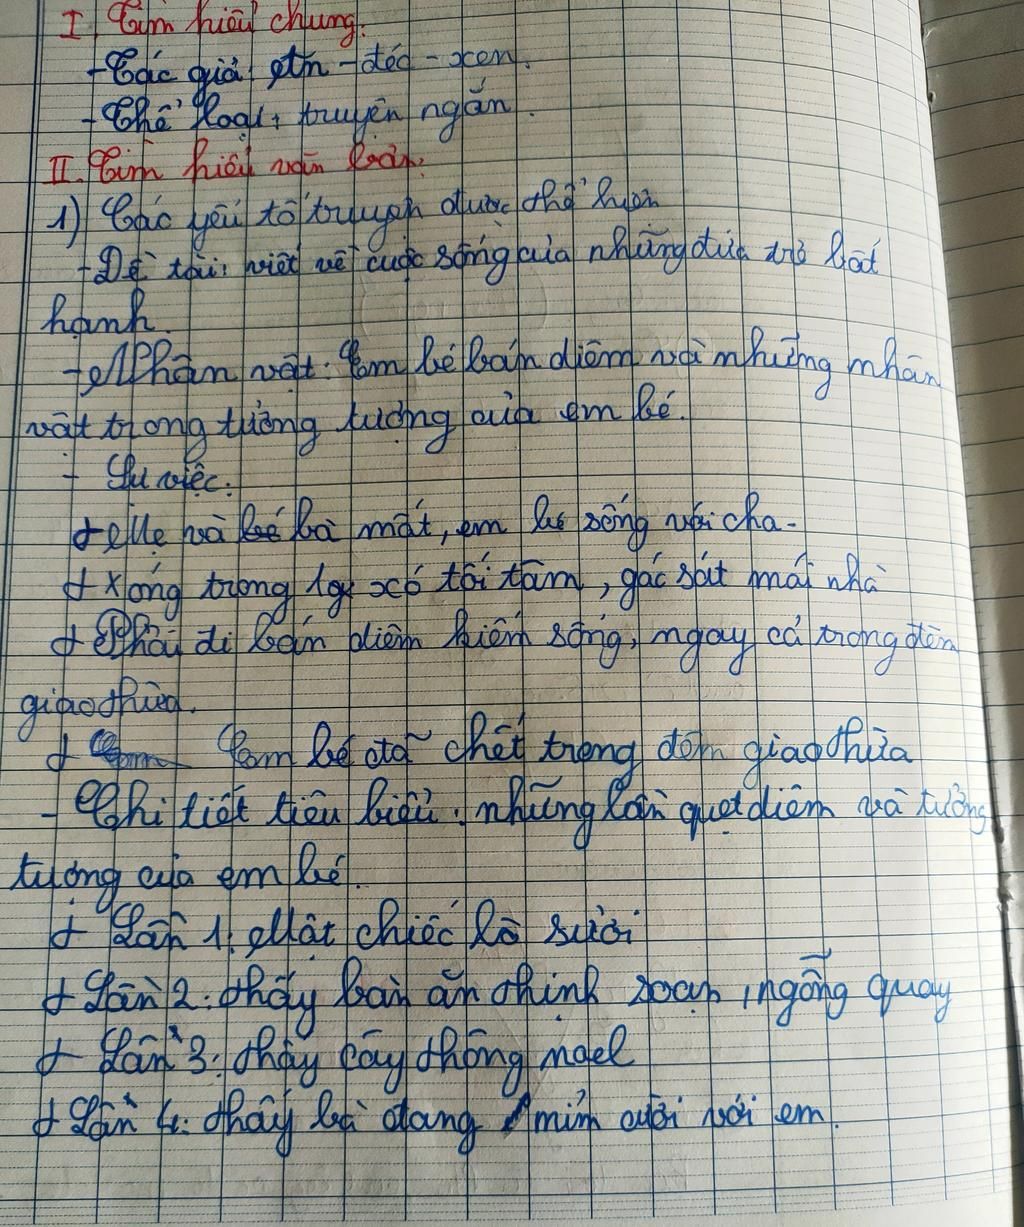 I. Tìm hiểu chung.
- Tác giả: An - đéc - xen.
- Thể loại: truyện ngắn.
II. Tìm hiểu văn bản.
1) Các yếu tố truyện được thể hiện
- Đề tài: viết về cuộc sống của những đứa trẻ bất
hạnh.
- Nhân vật: Em bé bán diêm và những nhân
vật trong tưởng tượng của em bé.
- Sự việc:
+ Mẹ và bà mất, em bé sống với cha.
+ Xống trong xó tối tăm, gác sát mái nhà
+ Phải đi bán diêm kiếm sống, ngay cả trong đêm
giao thừa.
+ Em bé đã chết trong đêm giao thừa
- Chi tiết tiêu biểu: những lần quẹt diêm và tưởng
tượng của em bé.
+ Lần 1: Một chiếc lò sưởi
+ Lần 2: thấy bàn ăn thịnh soạn, ngỗng quay
+ Lần 3: thấy cây thông noel
+ Lần 4: thấy bà đang mỉm cười với em.